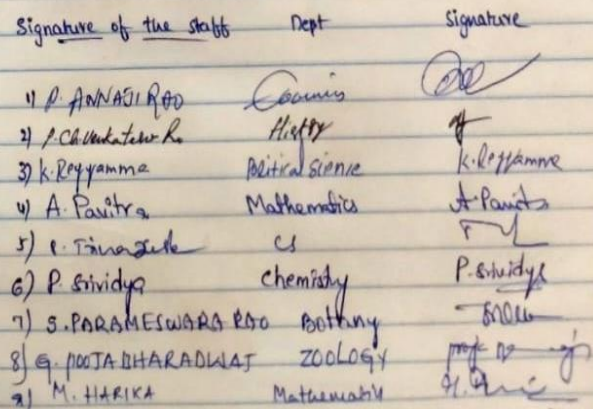 Signature of the staff Dept Signature
1) P. ANNAJI RAO
2) P. Ch. Venkateswa Ro History
3) K. Reyyamma Political Sience K. Reyyamma
4) A. Pavitra Mathematics A. Pavitra
5) CS
6) P. Srividya Chemistry P. Srividya
7) S. PARAMESWARA RAO Bothny
8) G. POOJA BHARADWAJ ZOOLOGY
9) M. HARIKA Mathematics